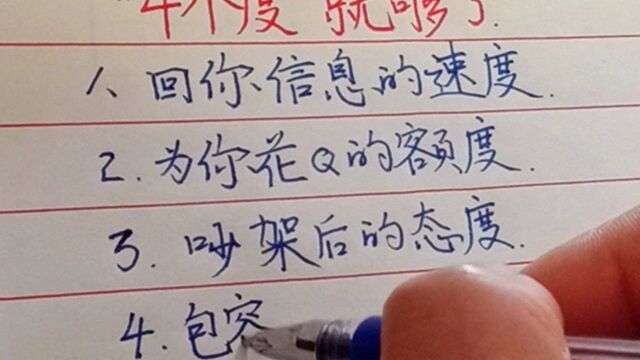 “4个度”就够了.
1、回你信息的速度.
2.为你花Q的额度.
3.吵架后的态度.
4.包容